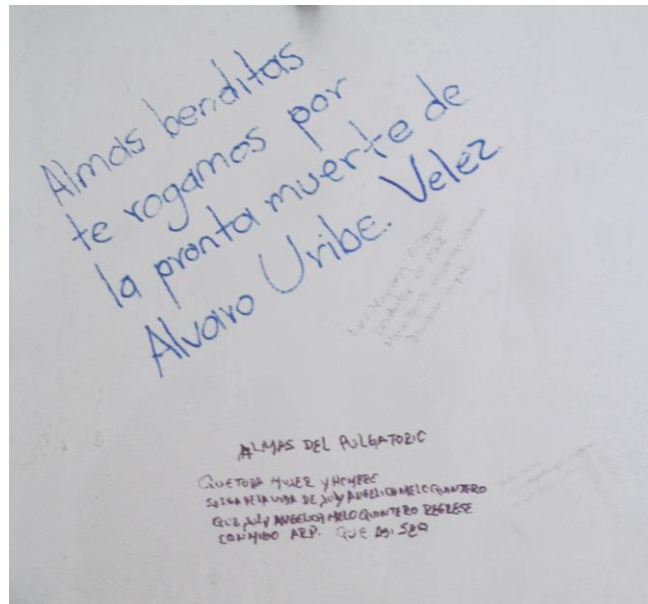 Almas benditas
te rogamos por
la pronta muerte de
Alvaro Uribe. Velez
ALMAS DEL PULGATORIO
QUE TODA MUJER Y HOMBRE
SALGA DE LA VIDA DE JULY ANGELICA MELO QUINTERO
QUE JULY ANGELICA MELO QUINTERO REGRESE
CONMIGO ARP. QUE ASI SEA